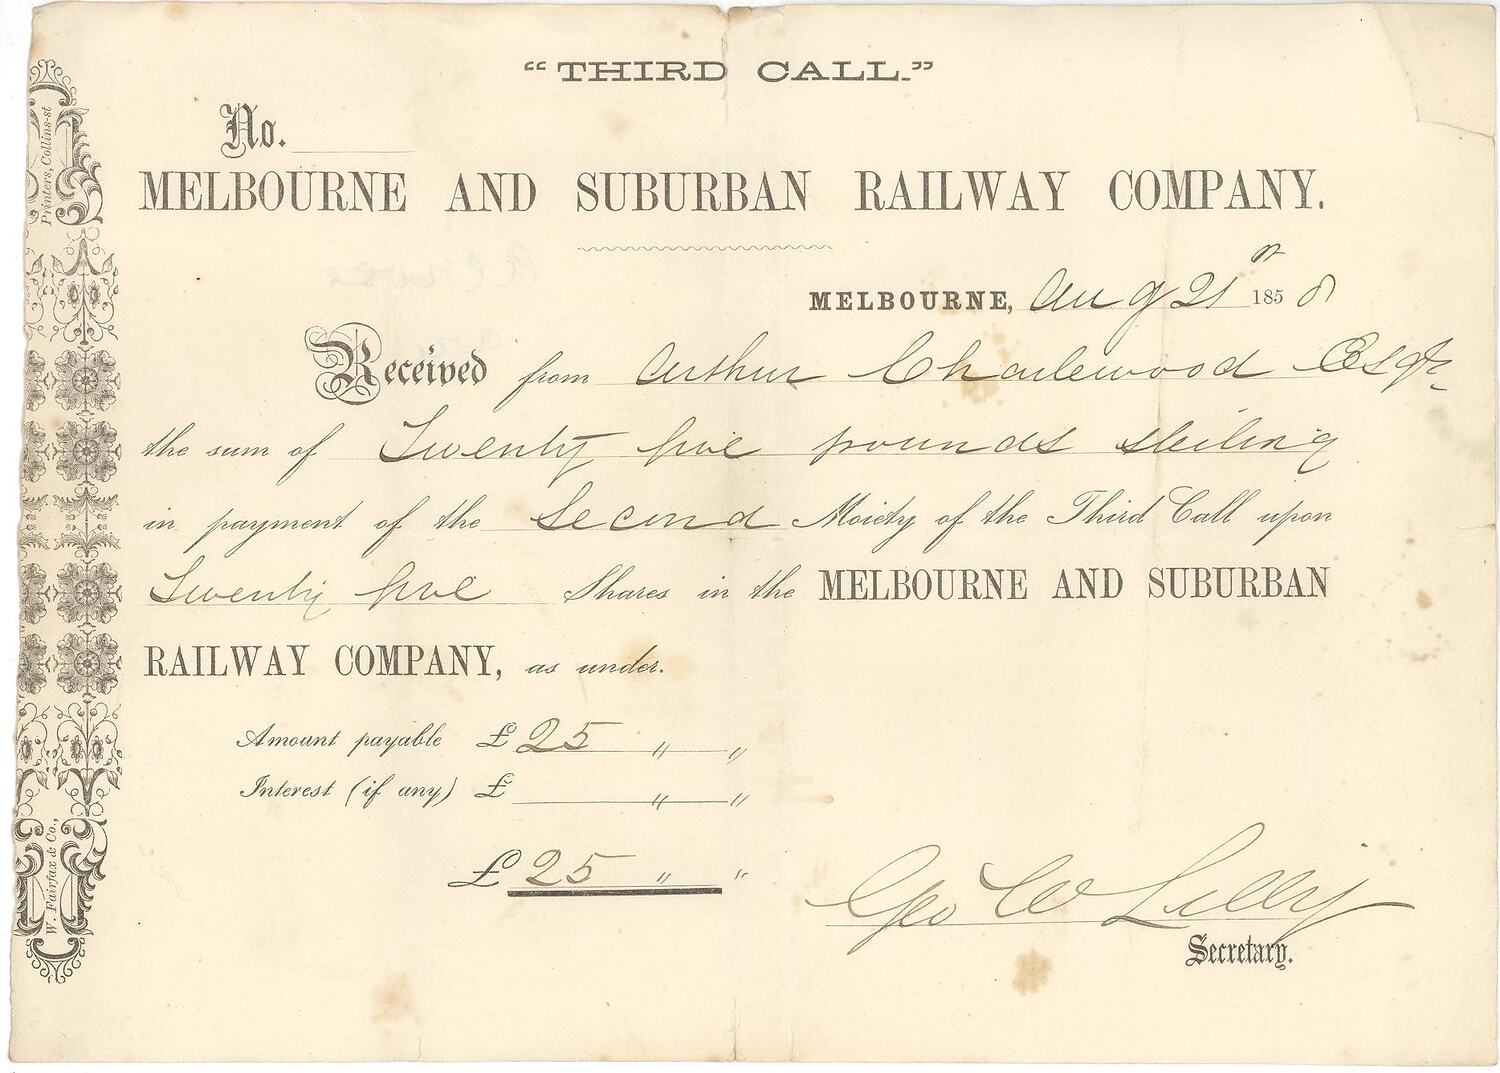 "THIRD CALL."
No.
MELBOURNE AND SUBURBAN RAILWAY COMPANY.
MELBOURNE, Aug 21st 1858
Received from Arthur Charlewood Esqr
the sum of Twenty five pounds sterling
in payment of the Second Moiety of the Third Call upon
Twenty five Shares in the MELBOURNE AND SUBURBAN
RAILWAY COMPANY, as under.
Amount payable £ 25 " "
Interest (if any) £ " "
£ 25 " "
Geo W Lilly
Secretary.
W. Fairfax & Co.,
Printers, Collins-st